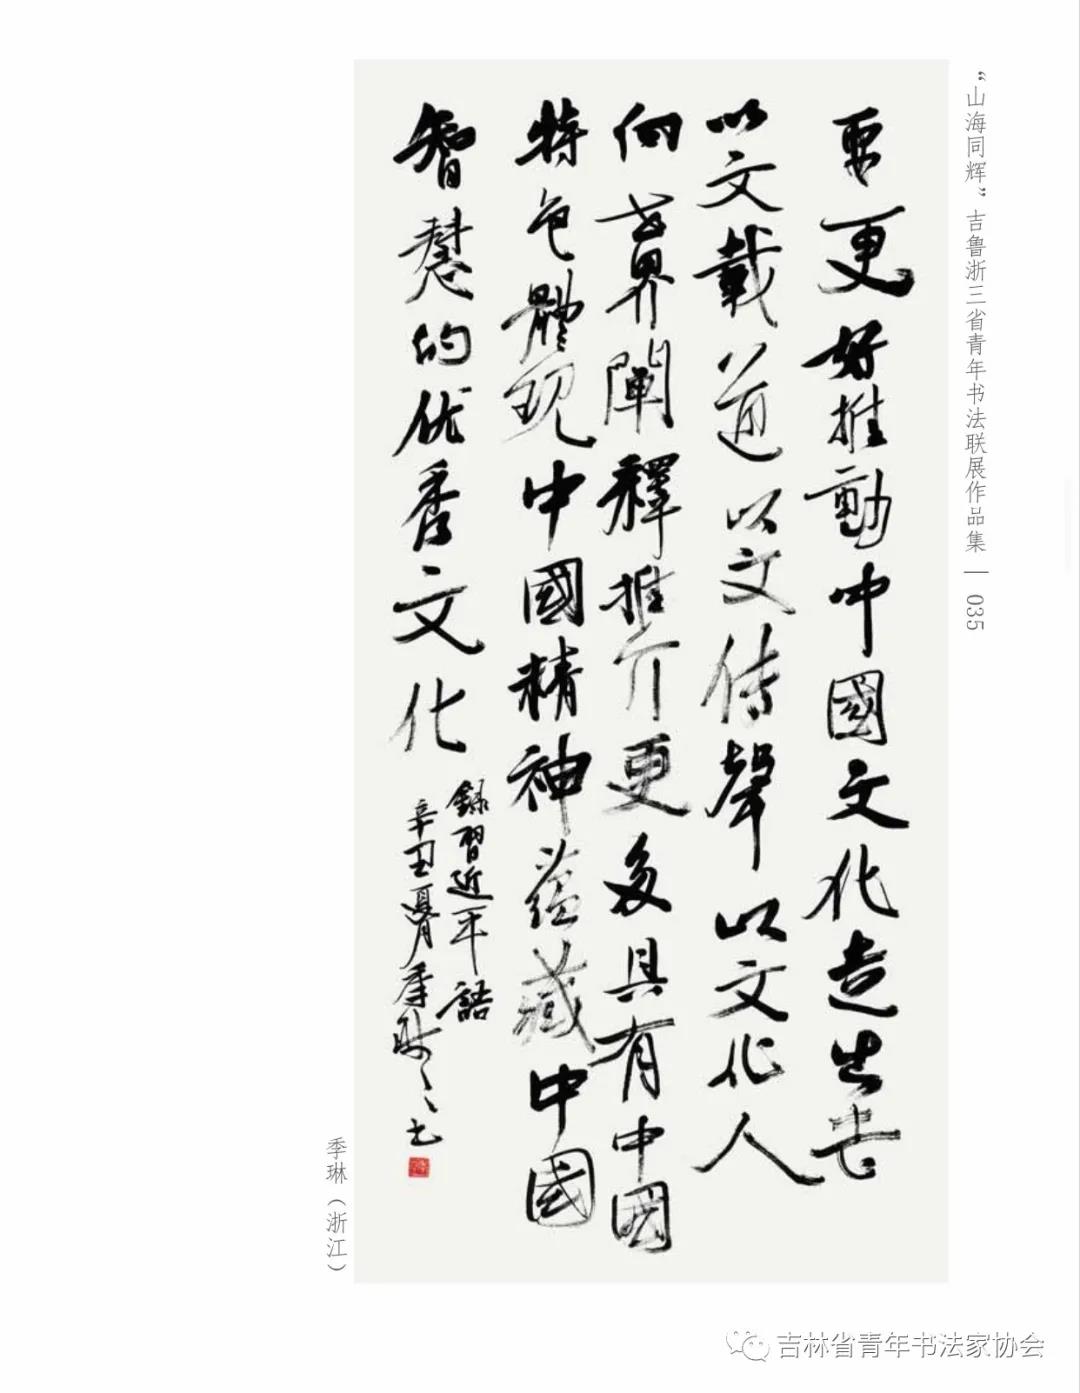 “山海同辉”吉鲁浙三省青年书法联展作品集 — 035
要更好推動中國文化走出去
以文載道以文传聲以文化人
向世界闡釋推介更多具有中國
特色體現中國精神蕴藏中國
智慧的优秀文化
錄習近平語
辛丑夏月季琳之書
季琳（浙江）
吉林省青年书法家协会